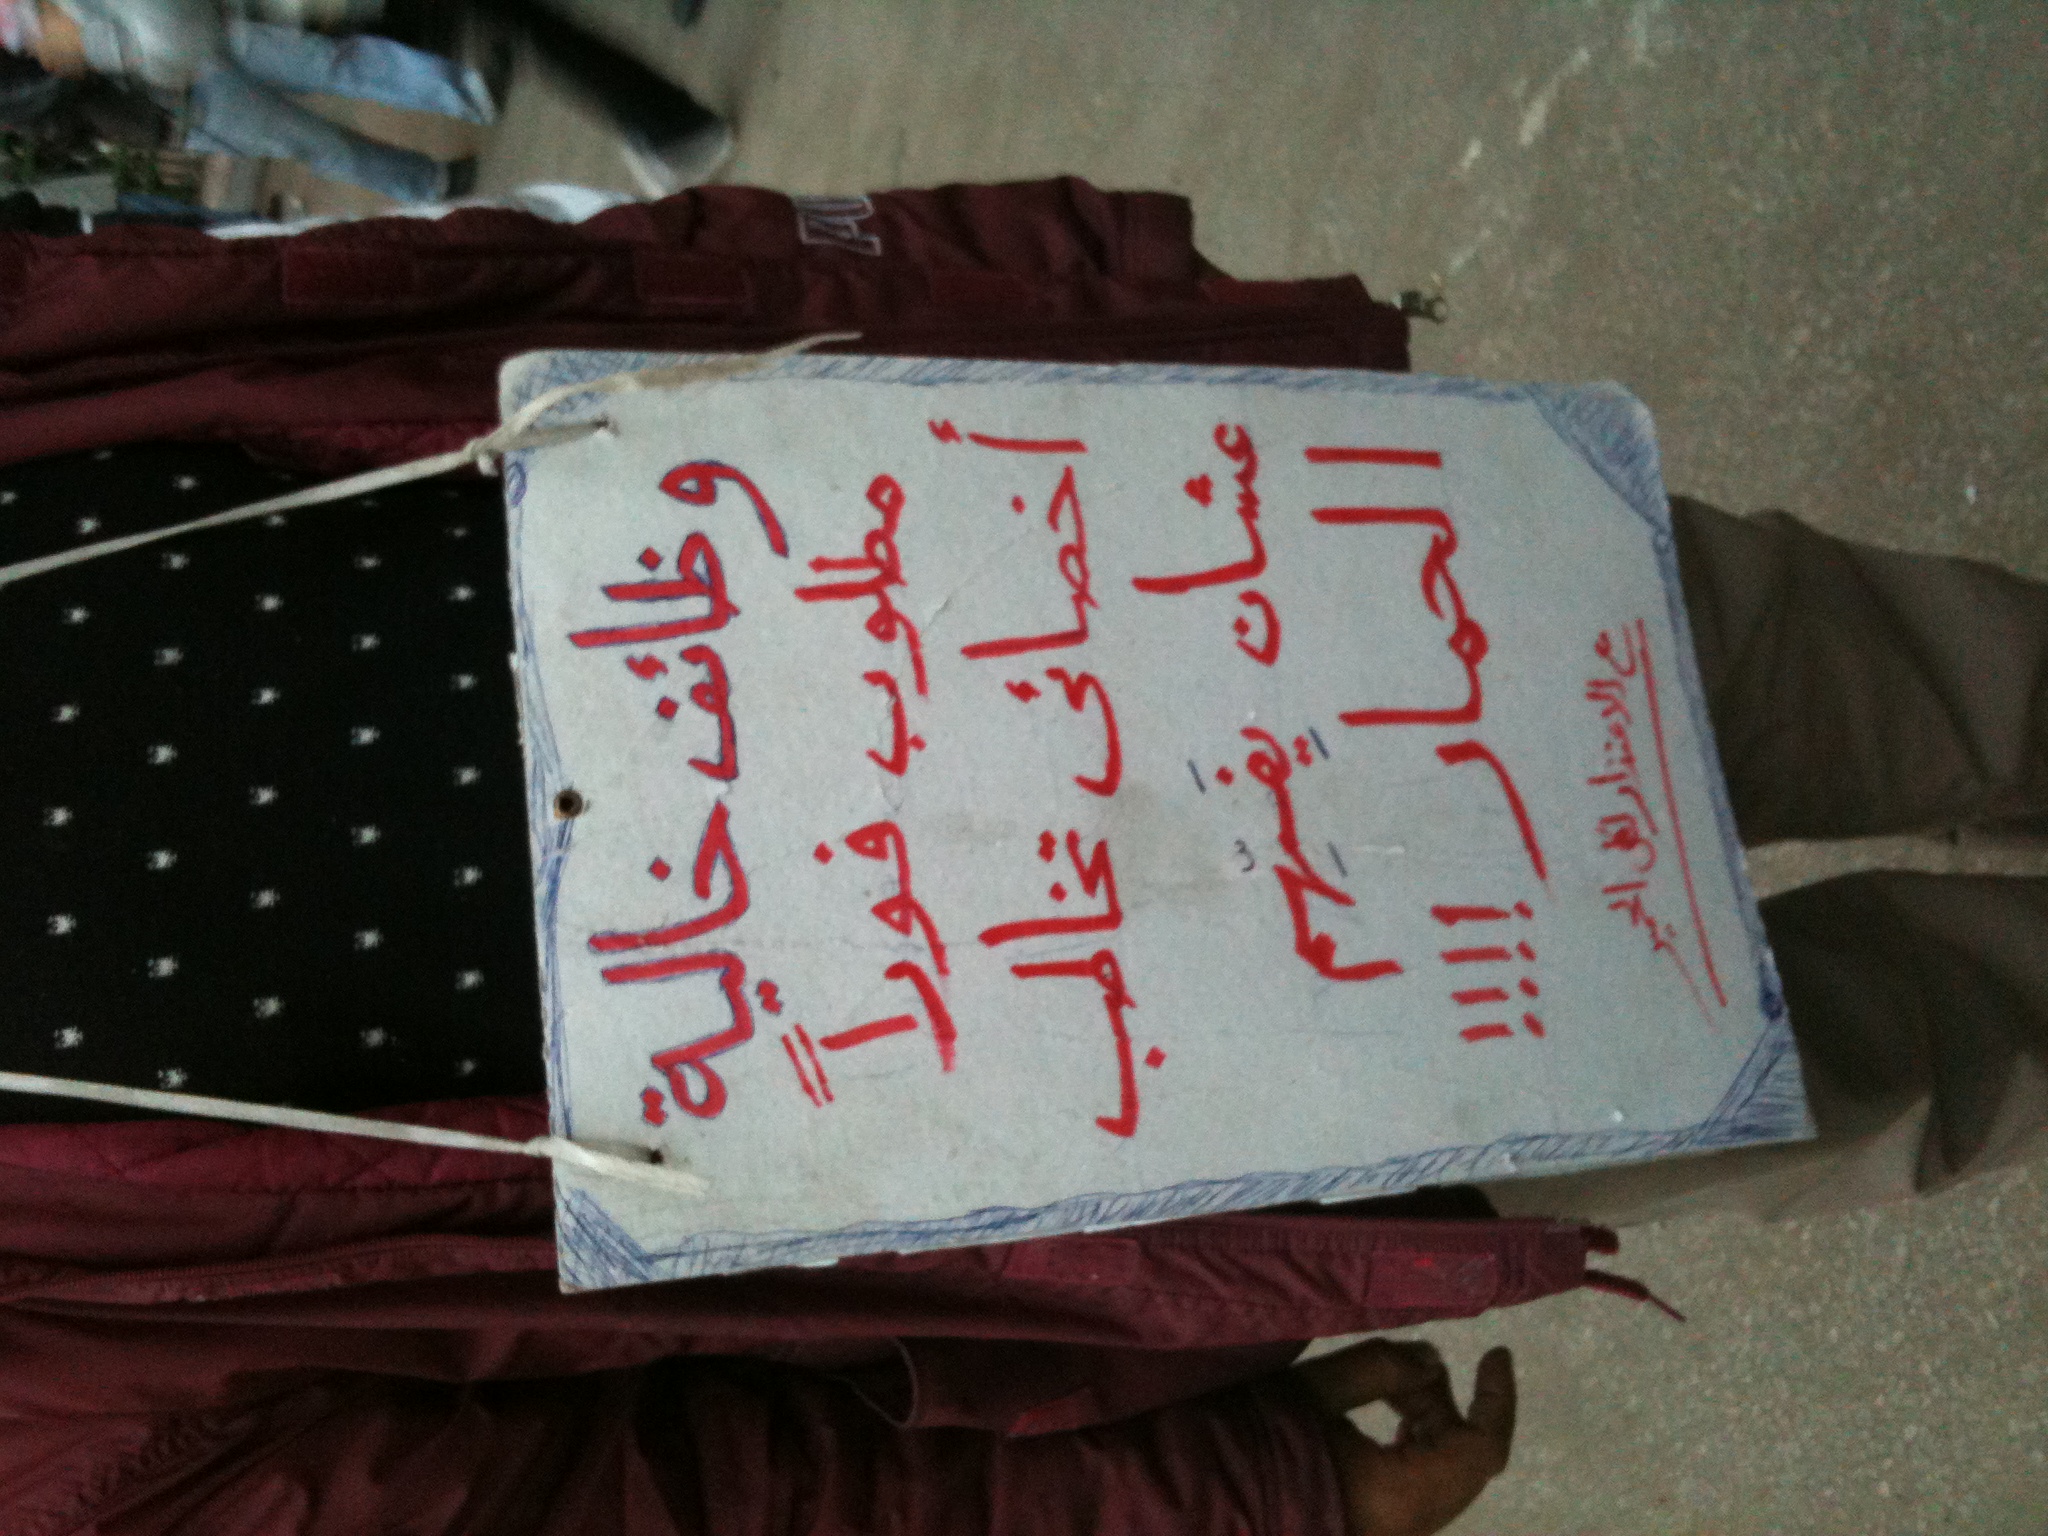 وظائف خالية
مطلوب فوراً
أخصائى تخاطب
عشان يفهم
الحمار !!!!
مع الاعتذار إلى الحمير